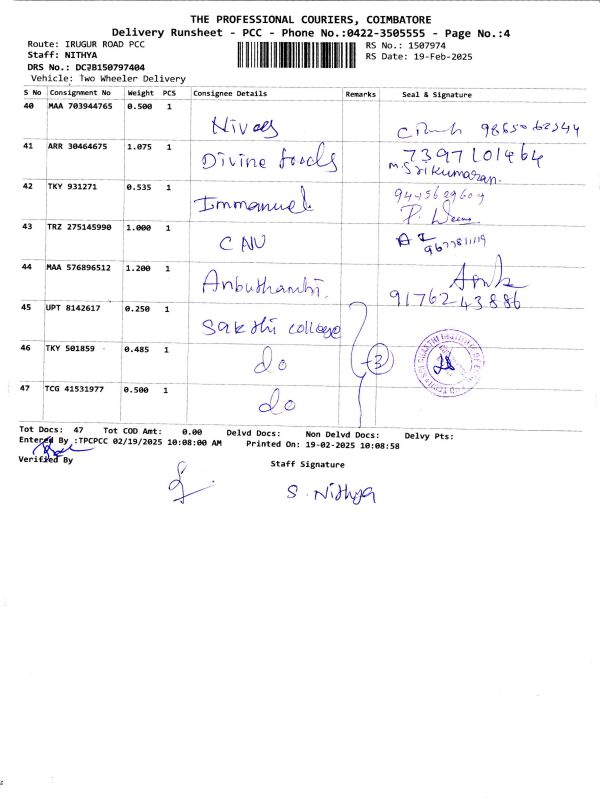 THE PROFESSIONAL COURIERS, COIMBATORE
Delivery Runsheet - PCC - Phone No.:0422-3505555 - Page No.:4
Route: IRUGUR ROAD PCC RS No.: 1507974
Staff: NITHYA RS Date: 19-Feb-2025
DRS No.: DC2B150797404
Vehicle: Two Wheeler Delivery
S No Consignment No Weight PCS Consignee Details Remarks Seal & Signature
40 MAA 703944765 0.500 1
Nivas
41 ARR 30464675 1.075 1 7397101464
Divine foods M. Srikumaran.
42 TKY 931271 0.535 1
Immanuel
43 TRZ 275145990 1.000 1
CNU 9677811119
44 MAA 576896512 1.200 1
Anbuthambi. 9176243886
45 UPT 8142617 0.250 1
Sakthi college
46 TKY 501859 0.485 1
do 3
47 TCG 41531977 0.500 1
do
Tot Docs: 47 Tot COD Amt: 0.00 Delvd Docs: Non Delvd Docs: Delvy Pts:
Entered By :TPCPCC 02/19/2025 10:08:00 AM Printed On: 19-02-2025 10:08:58
Verified By Staff Signature
S. Nithya